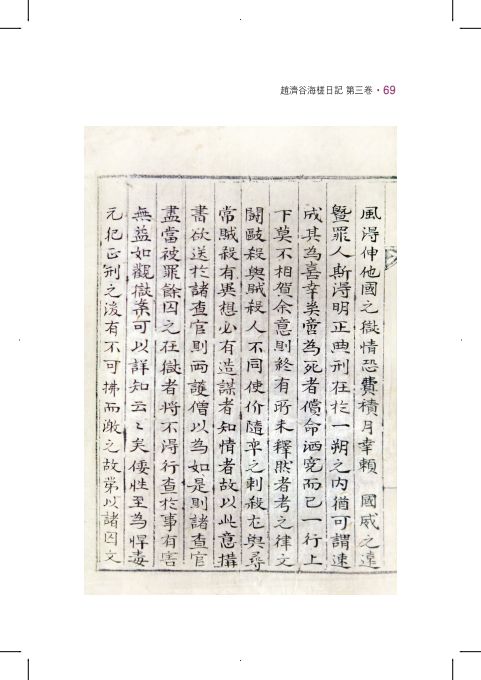 趙濟谷海槎日記 第三卷 · 69
風得伸他國之獄情恐費積月幸賴 國威之遠
曁罪人斯得明正典刑在於一朔之內猶可謂速
成其為喜幸奚啻為死者償命洒寃而已一行上
下莫不相賀余意則終有所未釋然者考之律文
鬪毆殺與賊殺人不同使价隨率之刺殺尤與尋
常賊殺有異想必有造謀者知情者故以此意搆
書欲送於諸査官則兩護僧以為如是則諸査官
盡當被罪餘囚之在獄者將不得行査於事有害
無益如觀獄案可以詳知云云矣倭性至為悍毒
元犯正刑之後有不可拂而激之故第以諸囚文